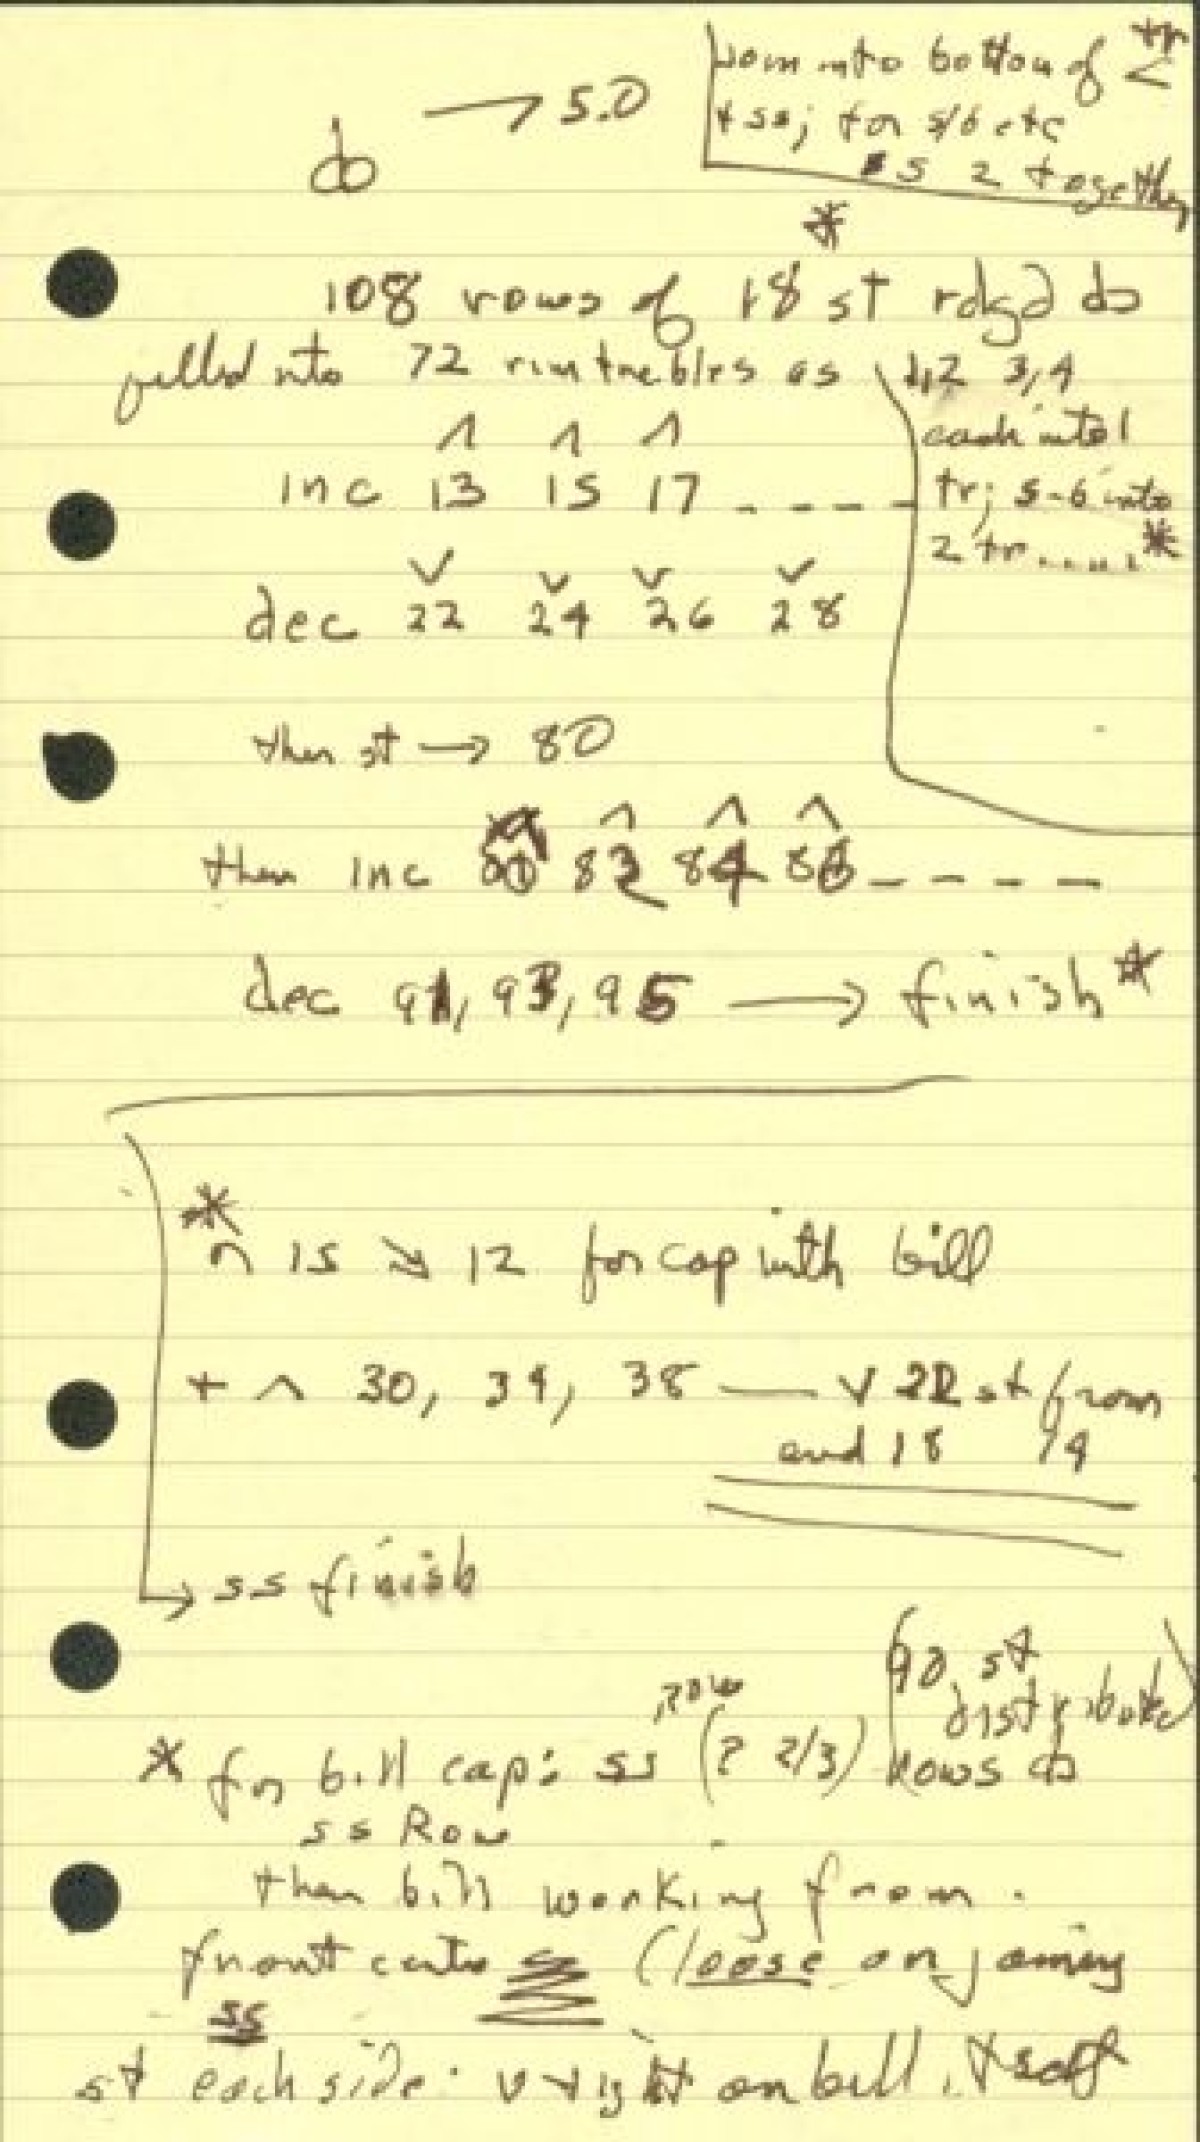 → 5.0
join into bottom of tr
+ ss; for 5/6 etc
ss 2 together
*
108 rows of 18 st rdgd
pulled into 72 rim trebles as 1,2 3,4
each into 1
tr; 5-6 into
2 tr..... *
^ ^ ^
inc 13 15 17 - - - -
v v v v
dec 22 24 26 28
then st → 80
^ ^ ^
then inc 82 84 86 - - - -
dec 91, 93, 95 → finish *
*
^ 15 ↘ 12 for cap with bill
+ ^ 30, 34, 38 — v 22 st from
end 18 14
→ ss finish
(90 st
distributed)
row
* for bill cap: ss (2 2/3) Rows
ss Row
then bill working from
front (loose on joining
ss
st each side. v tight on bill itself